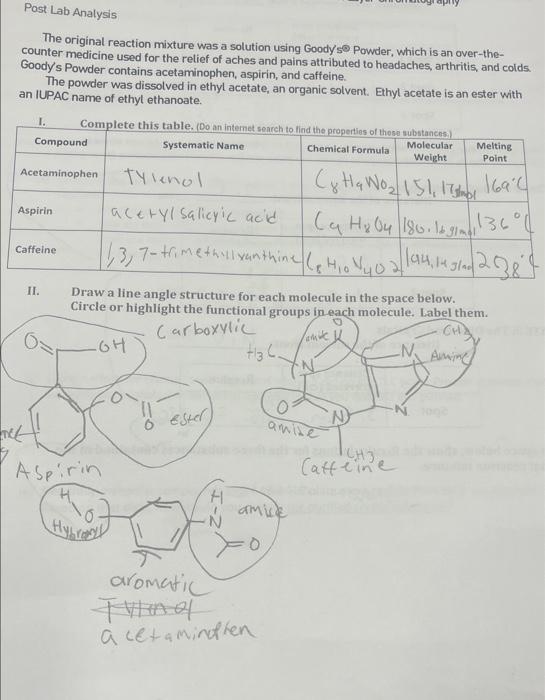 Post Lab Analysis
The original reaction mixture was a solution using Goody's® Powder, which is an over-the-
counter medicine used for the relief of aches and pains attributed to headaches, arthritis, and colds.
Goody's Powder contains acetaminophen, aspirin, and caffeine.
The powder was dissolved in ethyl acetate, an organic solvent. Ethyl acetate is an ester with
an IUPAC name of ethyl ethanoate.
I. Complete this table. (Do an internet search to find the properties of these substances.)
Compound Systematic Name Chemical Formula Molecular Weight Melting Point
Acetaminophen Tylenol C8H9NO2 151.17 g/mol 169°C
Aspirin acetyl salicylic acid C9H8O4 180.16 g/mol 136°C
Caffeine 1,3,7-trimethylxanthine C8H10N4O2 194.19 g/mol 238°C
II. Draw a line angle structure for each molecule in the space below.
Circle or highlight the functional groups in each molecule. Label them.
Carboxylic
O OH
O O ester
Aspirin
H3C N O amide
N CH3 Amine
O N N
amide
CH3
Caffeine
H O
Hydroxyl
H N O amide
aromatic
Tylenol
acetaminophen